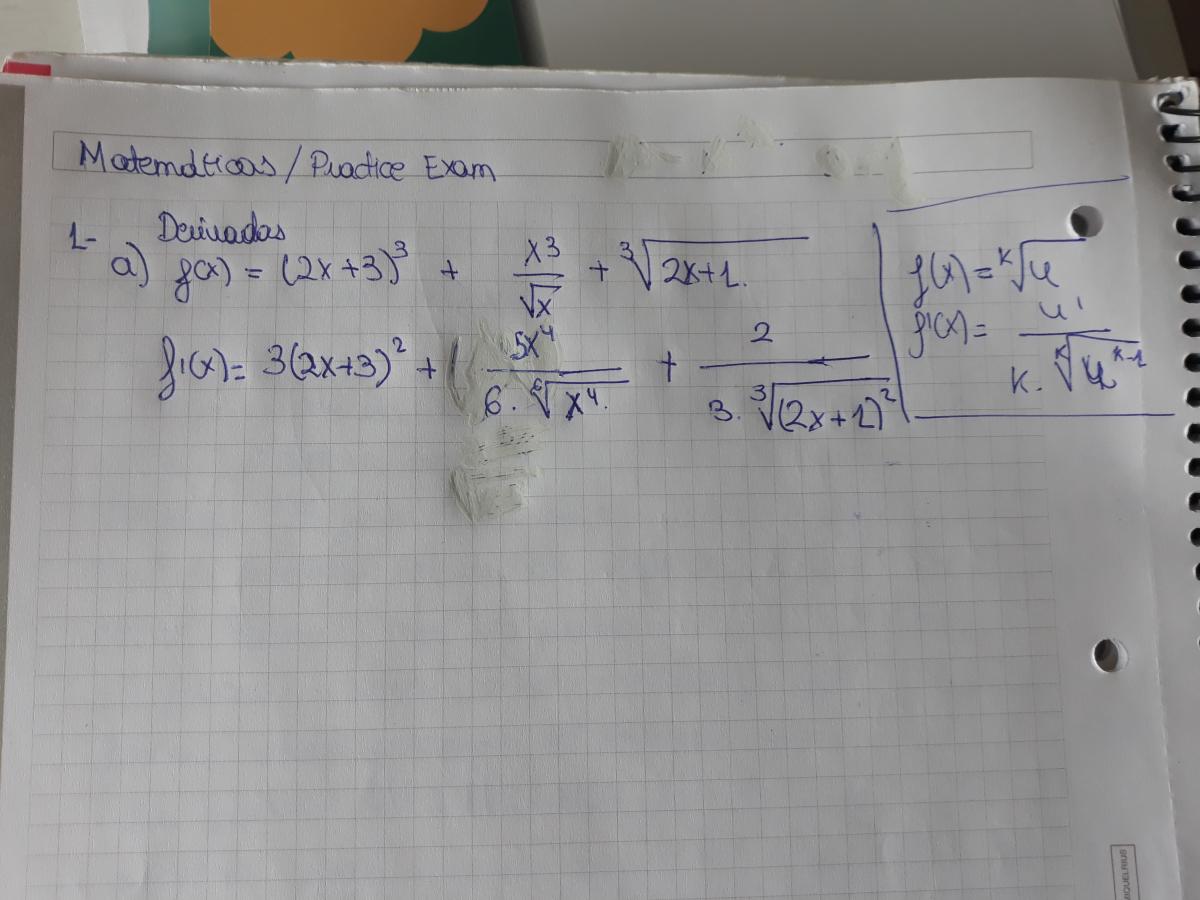 Matemáticas / Practice Exam
1- Derivadas
a) f(x) = (2x+3)³ + x³/√x + ³√(2x+1.)
f'(x) = 3(2x+3)² + 5x⁴/(6·⁶√(x⁴.)) + 2/(3.³√((2x+1)²))
f(x) = ᵏ√u
f'(x) = u'/(k.ᵏ√(uᵏ⁻¹))
MIQUELRIUS